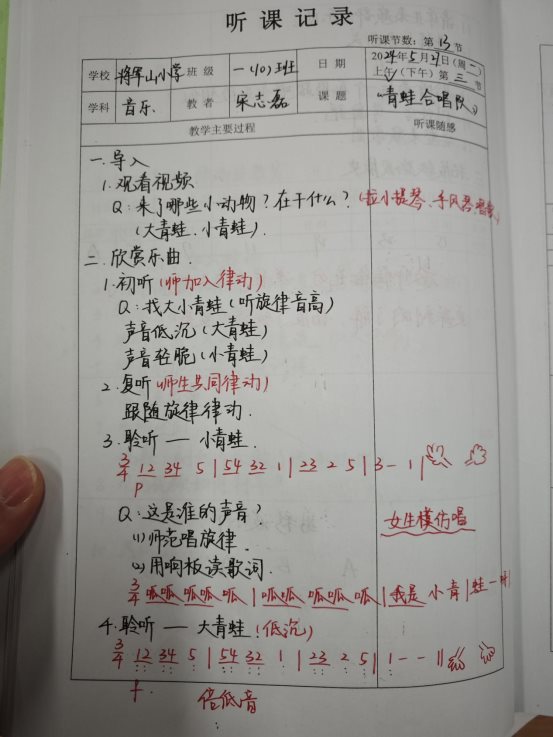 听课记录
听课节数：第 13 节
学校 将军山小学 班级 一(10)班 日期 2024年5月21日(周一)
上午(下午)第三节
学科 音乐 教者 宋志磊 课题 《青蛙合唱队》
教学主要过程 听课随感
一.导入
1.观看视频
Q:来了哪些小动物?在干什么?(拉小提琴、手风琴、唱歌)
(大青蛙、小青蛙).
二.欣赏乐曲.
1.初听(师加入律动)
Q:找大小青蛙(听旋律音高)
声音低沉(大青蛙)
声音轻脆(小青蛙)
2.复听(师生共同律动)
跟随旋律律动.
3.聆听 — 小青蛙.
3/4 12 34 5 | 54 32 1 | 23 2 5 | 3 - 1 |
p
Q:这是谁的声音? 女生模仿唱
(1)师范唱旋律.
(2)用响板读歌词.
3/4 呱呱 呱呱 呱 | 呱呱 呱呱 呱 | 我是 小青 | 蛙一
4.聆听 — 大青蛙(低沉)
3/4 12 34 5 | 54 32 1 | 23 2 5 | 1 - - ‖
f. 倍低音